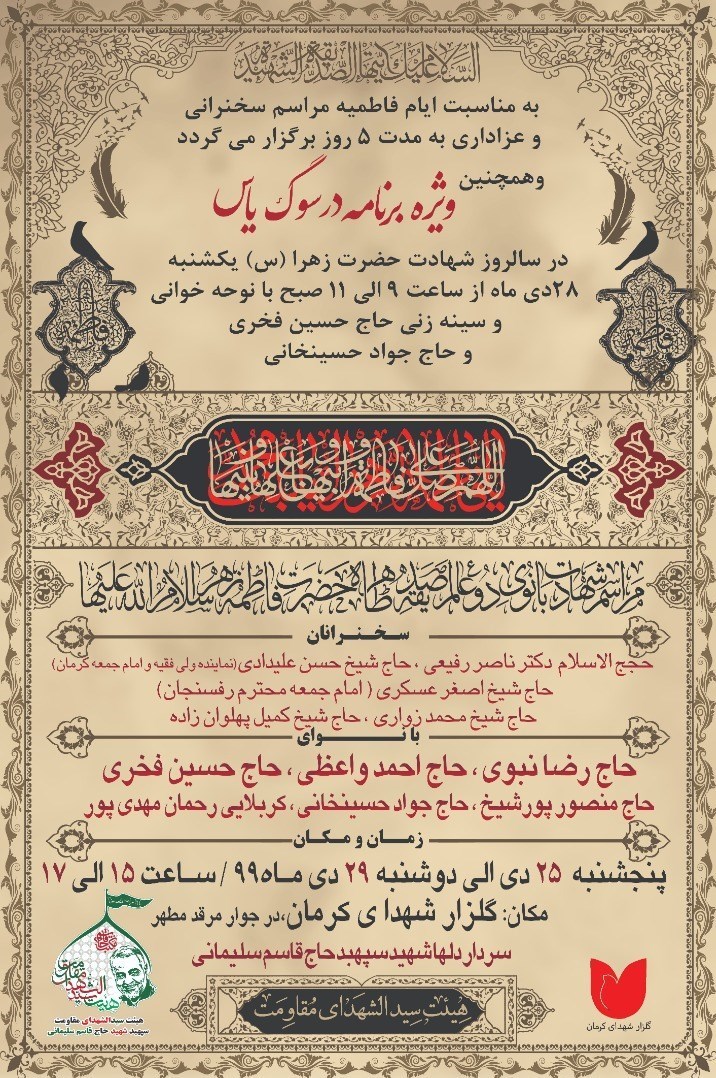 السلام علیک ایتها الصدیقة الشهیدة
به مناسبت ایام فاطمیه مراسم سخنرانی
و عزاداری به مدت ۵ روز برگزار می گردد
وهمچنین
ویژه برنامه در سوگ یاس
در سالروز شهادت حضرت زهرا (س) یکشنبه
۲۸دی ماه از ساعت ۹ الی ۱۱ صبح با نوحه خوانی
و سینه زنی حاج حسین فخری
و حاج جواد حسینخانی
فاطمه
فاطمه
اللهم صل علی فاطمة و ابیها و بعلها و بنیها
مراسم شهادت بانوی دو عالم صدیقه طاهره حضرت فاطمه زهرا سلام الله علیها
سخنرانان
حجج الاسلام دکتر ناصر رفیعی ، حاج شیخ حسن علیدادی (نماینده ولی فقیه و امام جمعه کرمان)
حاج شیخ اصغر عسکری ( امام جمعه محترم رفسنجان)
حاج شیخ محمد زواری ، حاج شیخ کمیل پهلوان زاده
با نوای
حاج رضا نبوی ، حاج احمد واعظی ، حاج حسین فخری
حاج منصور پورشیخ ، حاج جواد حسینخانی ، کربلایی رحمان مهدی پور
زمان و مکان
پنجشنبه ۲۵ دی الی دوشنبه ۲۹ دی ماه۹۹ / ساعت ۱۵ الی ۱۷
مکان: گلزار شهدای کرمان،در جوار مرقد مطهر
سردار دلها شهید سپهبد حاج قاسم سلیمانی
هیئت سیدالشهدای مقاومت
هیئت سیدالشهدای مقاومت
سپهبد شهید حاج قاسم سلیمانی
گلزار شهدای کرمان